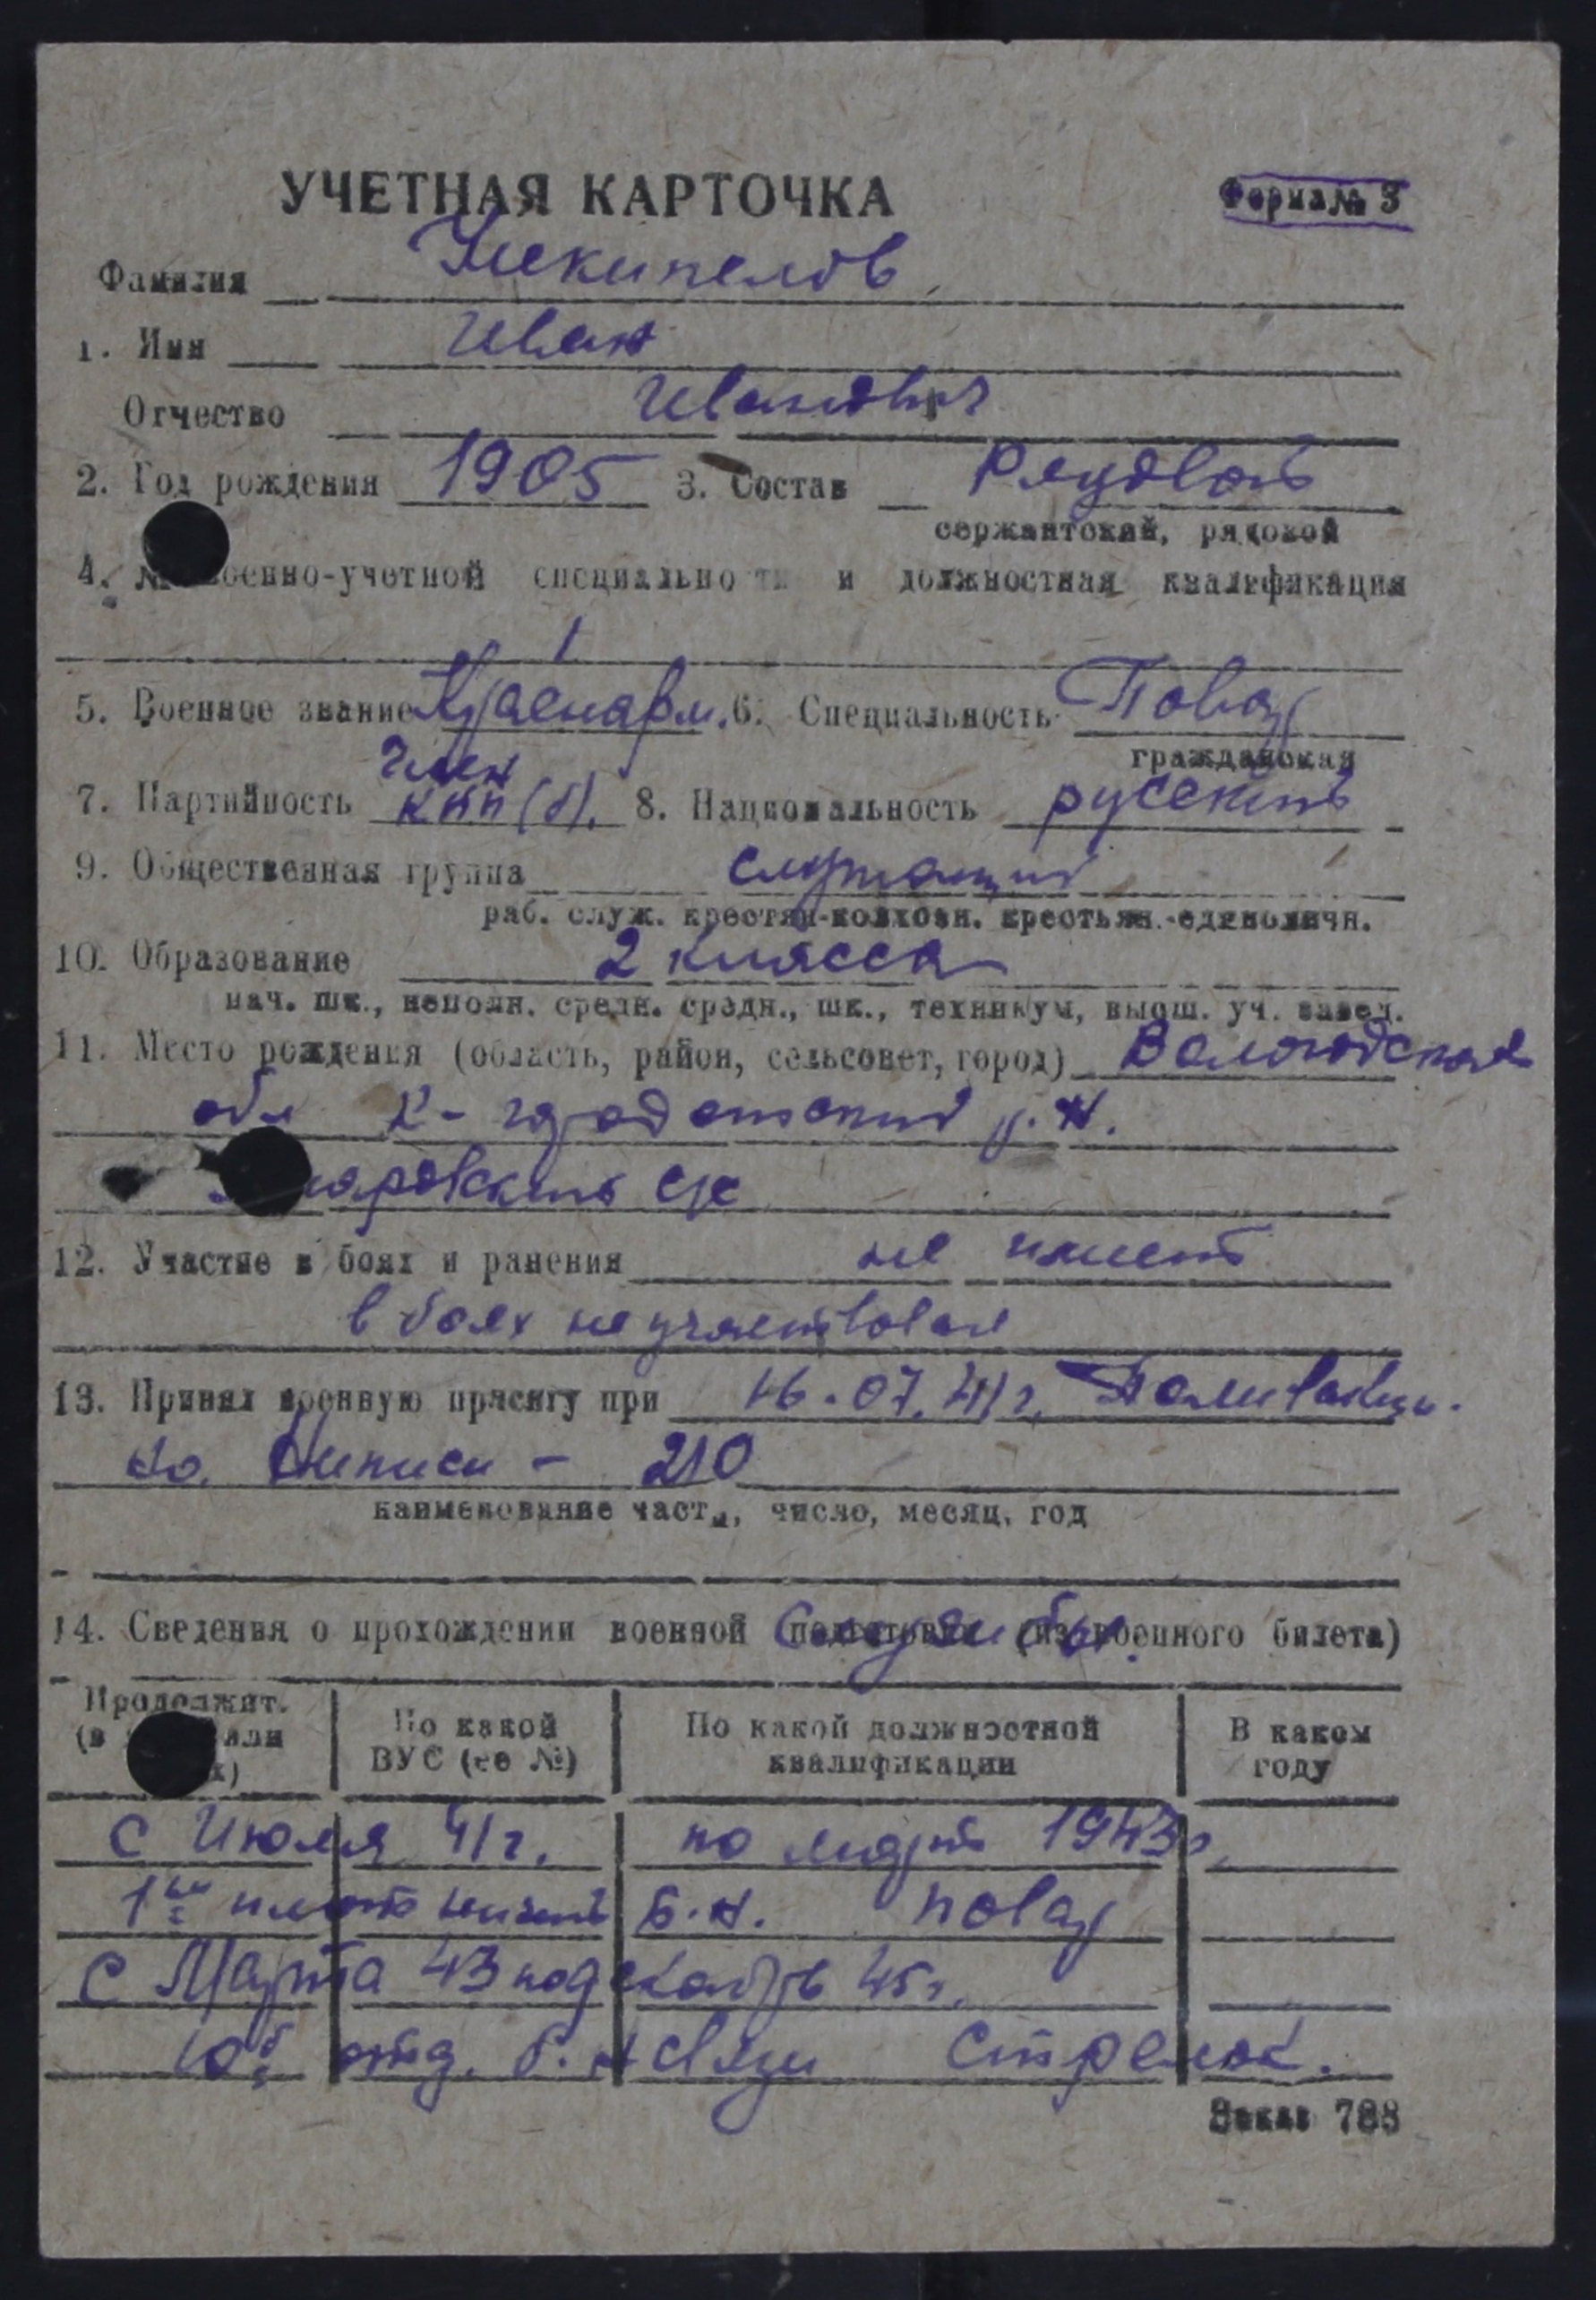 УЧЕТНАЯ КАРТОЧКА
Форма № 3
Фамилия Некипелов
1. Имя Иван
Отчество Иванович
2. Год рождения 1905 3. Состав Рядовой
сержантский, рядовой
4. № военно-учетной специальности и должностная квалификация
1
5. Военное звание Краснарм. 6. Специальность Повар
гражданская
член
7. Партийность ВКП(б). 8. Национальность русский
9. Общественная группа служащий
раб. служ. крестян-колхозн. крестьян.-единоличн.
10. Образование 2 класса
нач. шк., неполн. средн. средн., шк., техникум, высш. уч. завед.
11. Место рождения (область, район, сельсовет, город) Вологодская
обл К-городетский р.н.
аровский с/с
12. Участие в боях и ранения не имеет
в боях не участвовал
13. Принял военную присягу при 16.07.41г.
210
наименование части, число, месяц, год
14. Сведения о прохождении военной Службы. (из военного билета)
Продолжит. (в или х)
По какой ВУС (ее №)
По какой должностной квалификации
В каком году
с Июля 41г. по март 1943г.
Б.Н. повар
с Марта 43 по декабрь 45г.
10й отд. б-н связи Стрелок.
Заказ 788